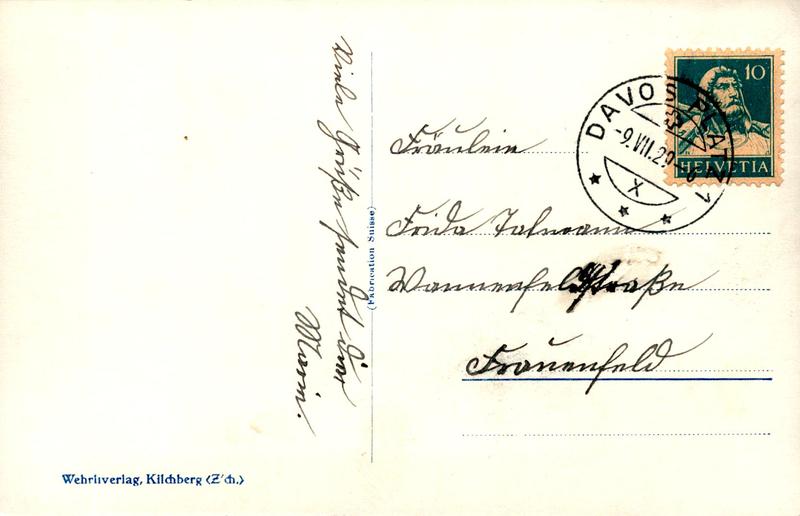 Viele Grüße sendet dir
Marie.
(Fabrication Suisse)
Fräulein
Frida Talmann
Wannenfeldstraße
Frauenfeld
DAVOS PLATZ 1
-9.VII.29
X
10
HELVETIA
Wehrliverlag, Kilchberg (Z'ch.)